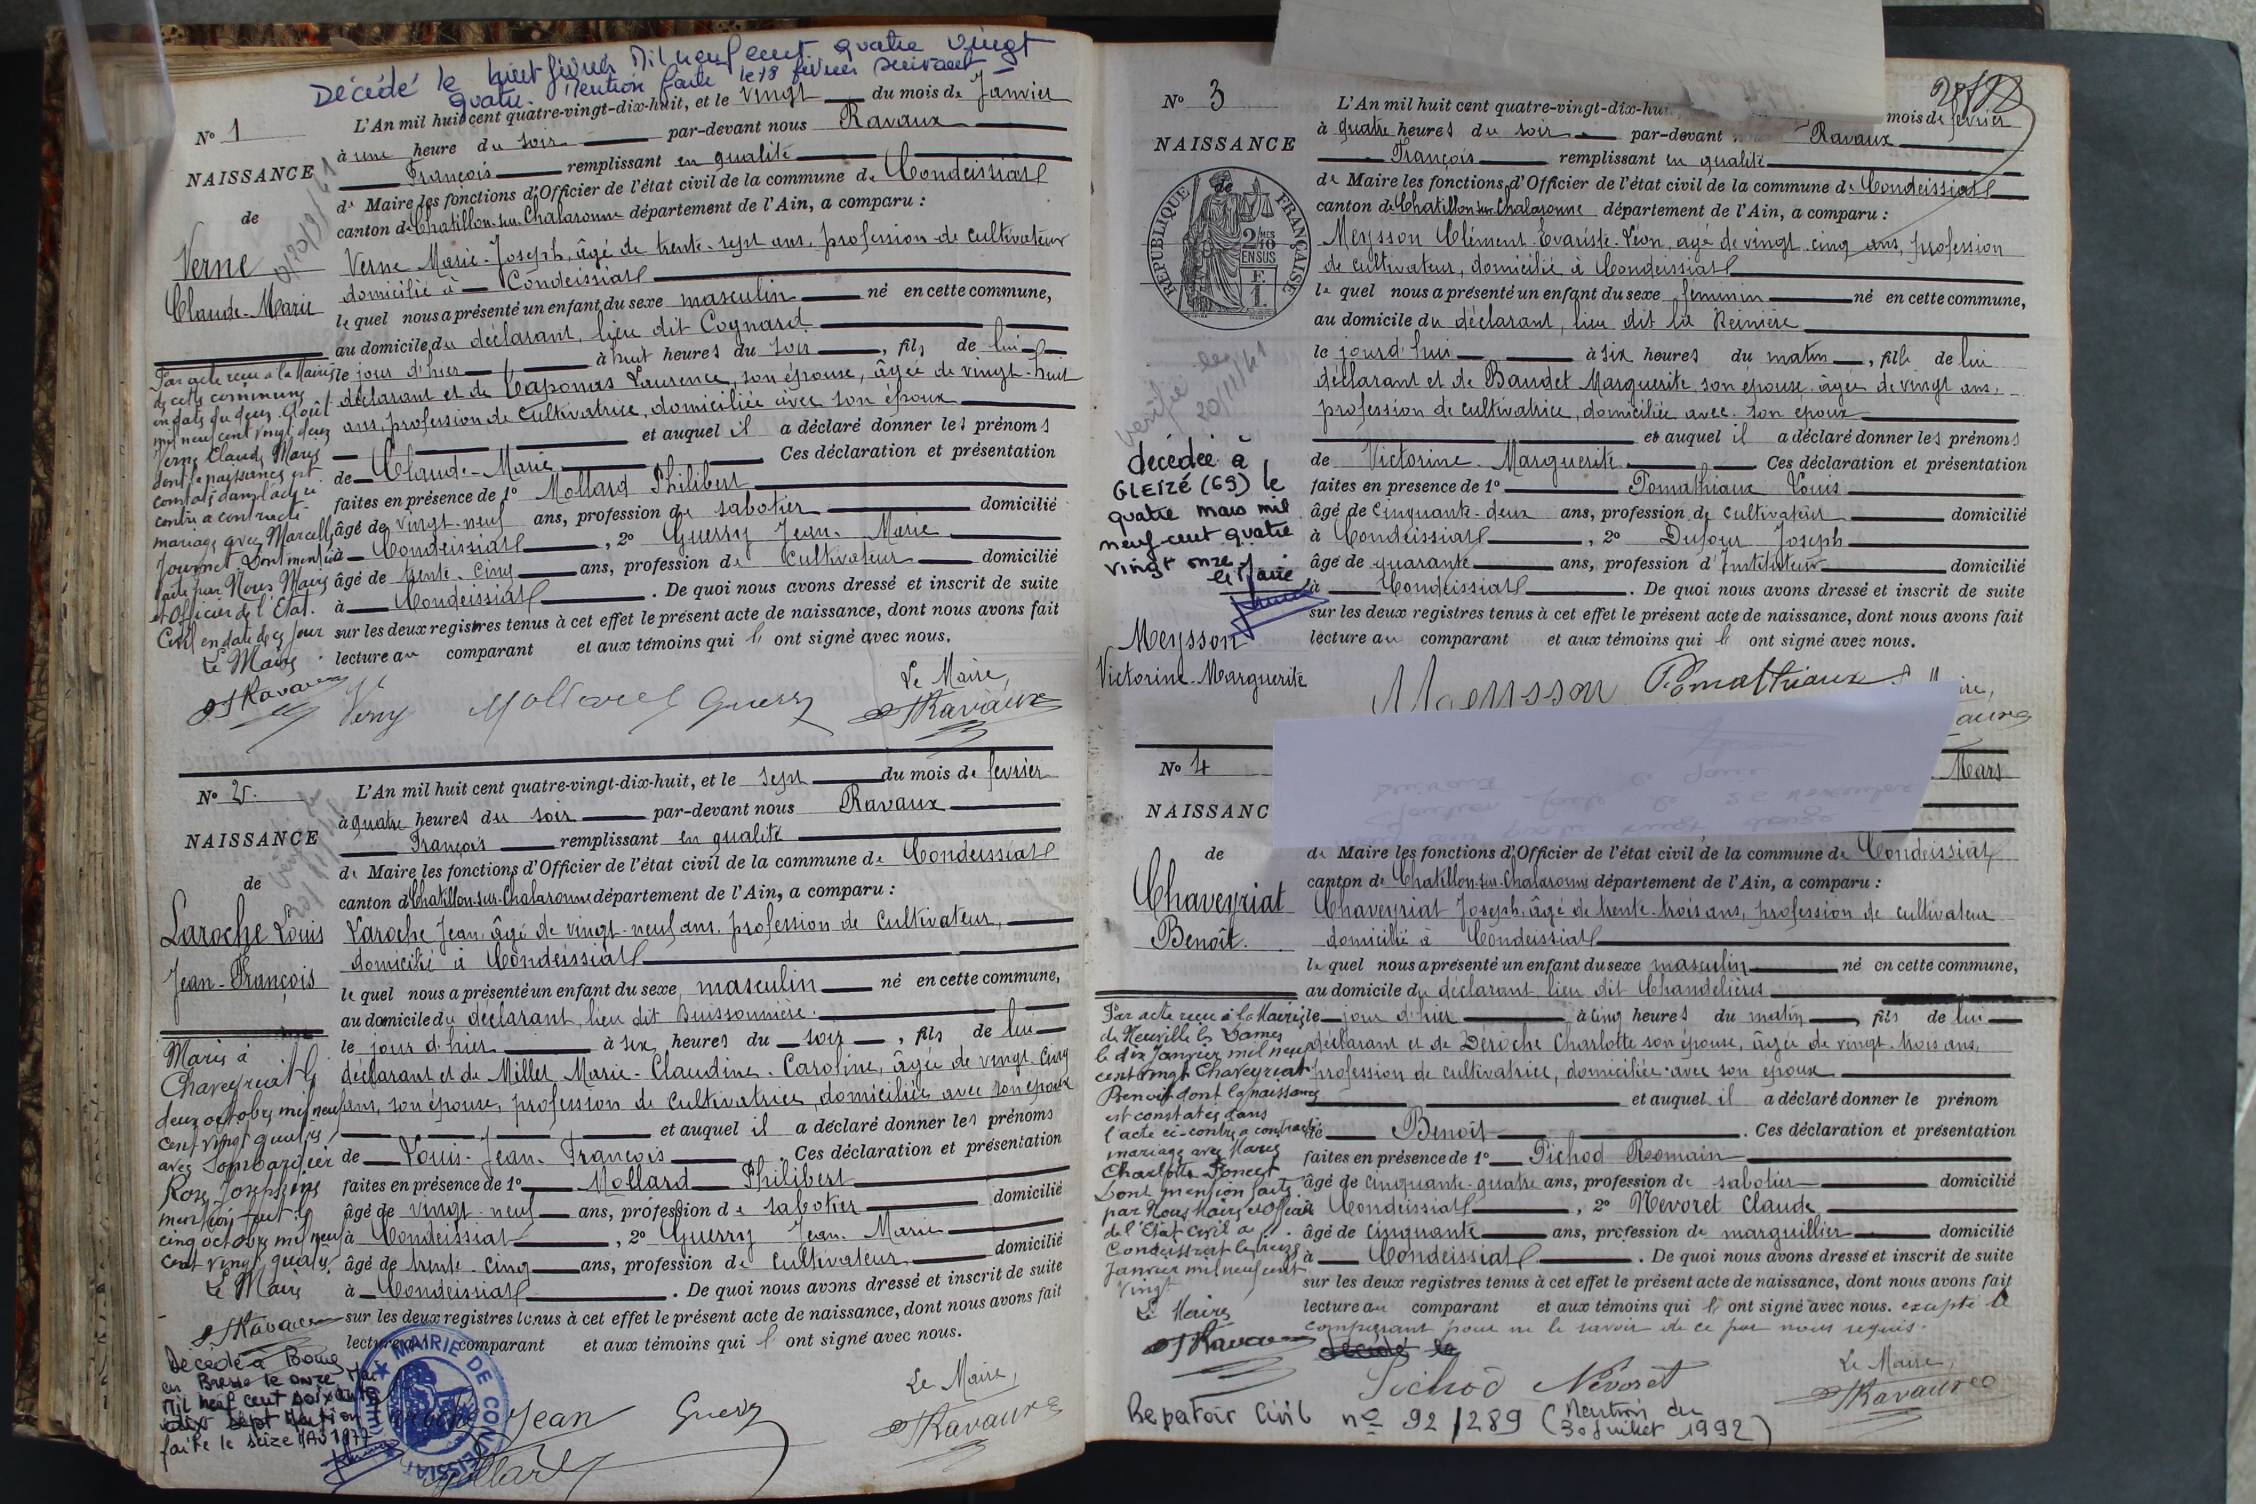 Décédé le huit février Mil neuf cent quatre vingt
quatre. Mention faite le 18 février suivant
N° 1
NAISSANCE
de
Verne
Claude-Marie
L'An mil huit cent quatre-vingt-dix-huit, et le vingt du mois de Janvier
à une heure du soir par-devant nous Ravaux
François remplissant en qualité
de Maire les fonctions d'Officier de l'état civil de la commune de Condeissiat
canton de Chatillon-sur-Chalaronne département de l'Ain, a comparu :
Verne Marie-Joseph, âgé de trente-sept ans, profession de cultivateur
domicilié à Condeissiat
le quel nous a présenté un enfant du sexe masculin né en cette commune,
au domicile du déclarant, lieu dit Cognard
le jour d'hier à huit heures du soir, fils de lui
déclarant et de Caponas Laurence, son épouse, âgée de vingt-huit
ans, profession de cultivatrice, domiciliée avec son époux
et auquel il a déclaré donner les prénoms
de Claude-Marie Ces déclaration et présentation
faites en présence de 1° Mollard Philibert
âgé de vingt-neuf ans, profession de sabotier domicilié
à Condeissiat, 2° Guerry Jean-Marie
âgé de trente-cinq ans, profession de cultivateur domicilié
à Condeissiat. De quoi nous avons dressé et inscrit de suite
sur les deux registres tenus à cet effet le présent acte de naissance, dont nous avons fait
lecture au comparant et aux témoins qui ont signé avec nous.
Par acte reçu à la Mairie
de cette commune
en date du deux Août
mil neuf cent vingt deux
Verne Claude Marie
dont la naissance est
constatée dans l'acte ci
contre a contracté
mariage avec Marcelle
Journet. Dont mention
faite par Nous Maire
et Officier de l'Etat
Civil en date de ce jour
Le Maire
Ravaux
Verne Mollard Guerry
Le Maire,
Ravaux
N° 2
NAISSANCE
de
Laroche Louis
Jean-François
L'An mil huit cent quatre-vingt-dix-huit, et le sept du mois de février
à quatre heures du soir par-devant nous Ravaux
François remplissant en qualité
de Maire les fonctions d'Officier de l'état civil de la commune de Condeissiat
canton de Chatillon-sur-Chalaronne département de l'Ain, a comparu :
Laroche Jean, âgé de vingt-neuf ans, profession de cultivateur,
domicilié à Condeissiat
le quel nous a présenté un enfant du sexe masculin né en cette commune,
au domicile du déclarant, lieu dit Buissonnière.
le jour d'hier à six heures du soir, fils de lui
déclarant et de Millet Marie-Claudine-Caroline, âgée de vingt-cinq
ans, son épouse, profession de cultivatrice, domiciliée avec son époux
et auquel il a déclaré donner les prénoms
de Louis-Jean-François. Ces déclaration et présentation
faites en présence de 1° Mollard Philibert
âgé de vingt-neuf ans, profession de sabotier domicilié
à Condeissiat, 2° Guerry Jean-Marie
âgé de trente-cinq ans, profession de cultivateur domicilié
à Condeissiat. De quoi nous avons dressé et inscrit de suite
sur les deux registres tenus à cet effet le présent acte de naissance, dont nous avons fait
lecture au comparant et aux témoins qui ont signé avec nous.
Marié à
Chaveyriat le
deux octobre mil neuf
cent vingt quatre
avec Lombardier
Rose Josephine
mention faite le
cinq octobre mil neuf
cent vingt quatre
Le Maire
Ravaux
Décédé à Bourg
en Bresse le onze Mai
mil neuf cent soixante
dix sept Mention
faite le seize Mai 1977
MAIRIE DE CONDEISSIAT
Jean Guerry
Mollard
Le Maire,
Ravaux
N° 3
NAISSANCE
de
RÉPUBLIQUE FRANÇAISE
2 MES
10
EN SUS
L'An mil huit cent quatre-vingt-dix-hu mois de février
à quatre heures du soir par-devant nous Ravaux
François remplissant en qualité
de Maire les fonctions d'Officier de l'état civil de la commune de Condeissiat
canton de Chatillon-sur-Chalaronne département de l'Ain, a comparu :
Meysson Clément-Evariste-Léon, âgé de vingt-cinq ans, profession
de cultivateur, domicilié à Condeissiat
le quel nous a présenté un enfant du sexe féminin né en cette commune,
au domicile du déclarant, lieu dit la Reinière
le jourd'hui à six heures du matin, fille de lui
déclarant et de Baudet Marguerite, son épouse, âgée de vingt ans,
profession de cultivatrice, domiciliée avec son époux
et auquel il a déclaré donner les prénoms
de Victorine-Marguerite. Ces déclaration et présentation
faites en présence de 1° Pomathiaux Louis
âgé de cinquante-deux ans, profession de cultivateur domicilié
à Condeissiat, 2° Dufour Joseph
âgé de quarante ans, profession d'Instituteur domicilié
à Condeissiat. De quoi nous avons dressé et inscrit de suite
sur les deux registres tenus à cet effet le présent acte de naissance, dont nous avons fait
lecture au comparant et aux témoins qui ont signé avec nous.
vérifié le
20/1/61
décédée à
GLEIZÉ (69) le
quatre mars mil
neuf cent quatre
vingt onze
le Maire
Meysson
Victorine-Marguerite
Meysson Pomathiaux
N° 4
NAISSANC
de
Chaveyriat
Benoît.
Mars
de Maire les fonctions d'Officier de l'état civil de la commune de Condeissiat
canton de Chatillon-sur-Chalaronne département de l'Ain, a comparu :
Chaveyriat Joseph, âgé de trente-trois ans, profession de cultivateur
domicilié à Condeissiat
le quel nous a présenté un enfant du sexe masculin né en cette commune,
au domicile du déclarant, lieu dit Chandelières
le jour d'hier à cinq heures du matin, fils de lui
déclarant et de Déroche Charlotte son épouse, âgée de vingt-trois ans,
profession de cultivatrice, domiciliée avec son époux
et auquel il a déclaré donner le prénom
de Benoît. Ces déclaration et présentation
faites en présence de 1° Pichod Romain
âgé de cinquante-quatre ans, profession de sabotier domicilié
à Condeissiat, 2° Nevoret Claude
âgé de cinquante ans, profession de marguillier domicilié
à Condeissiat. De quoi nous avons dressé et inscrit de suite
sur les deux registres tenus à cet effet le présent acte de naissance, dont nous avons fait
lecture au comparant et aux témoins qui ont signé avec nous. excepté le
comparant pour ne le savoir de ce par nous requis.
Par acte reçu à la Mairie
de Neuville les Dames
le dix Janvier mil neuf
cent vingt Chaveyriat
Benoit dont la naissance
est constatée dans
l'acte ci-contre a contracté
mariage avec Marie
Charlotte Poncet
Dont mention faite
par Nous Maire et Officier
de l'Etat Civil à
Condeissiat le treize
Janvier mil neuf cent
vingt
Le Maire
Ravaux
décédé le
Pichod Nevoret
Le Maire,
Ravaux
Repertoir Civil n° 92/289 (Mention du
30 Juillet 1992)